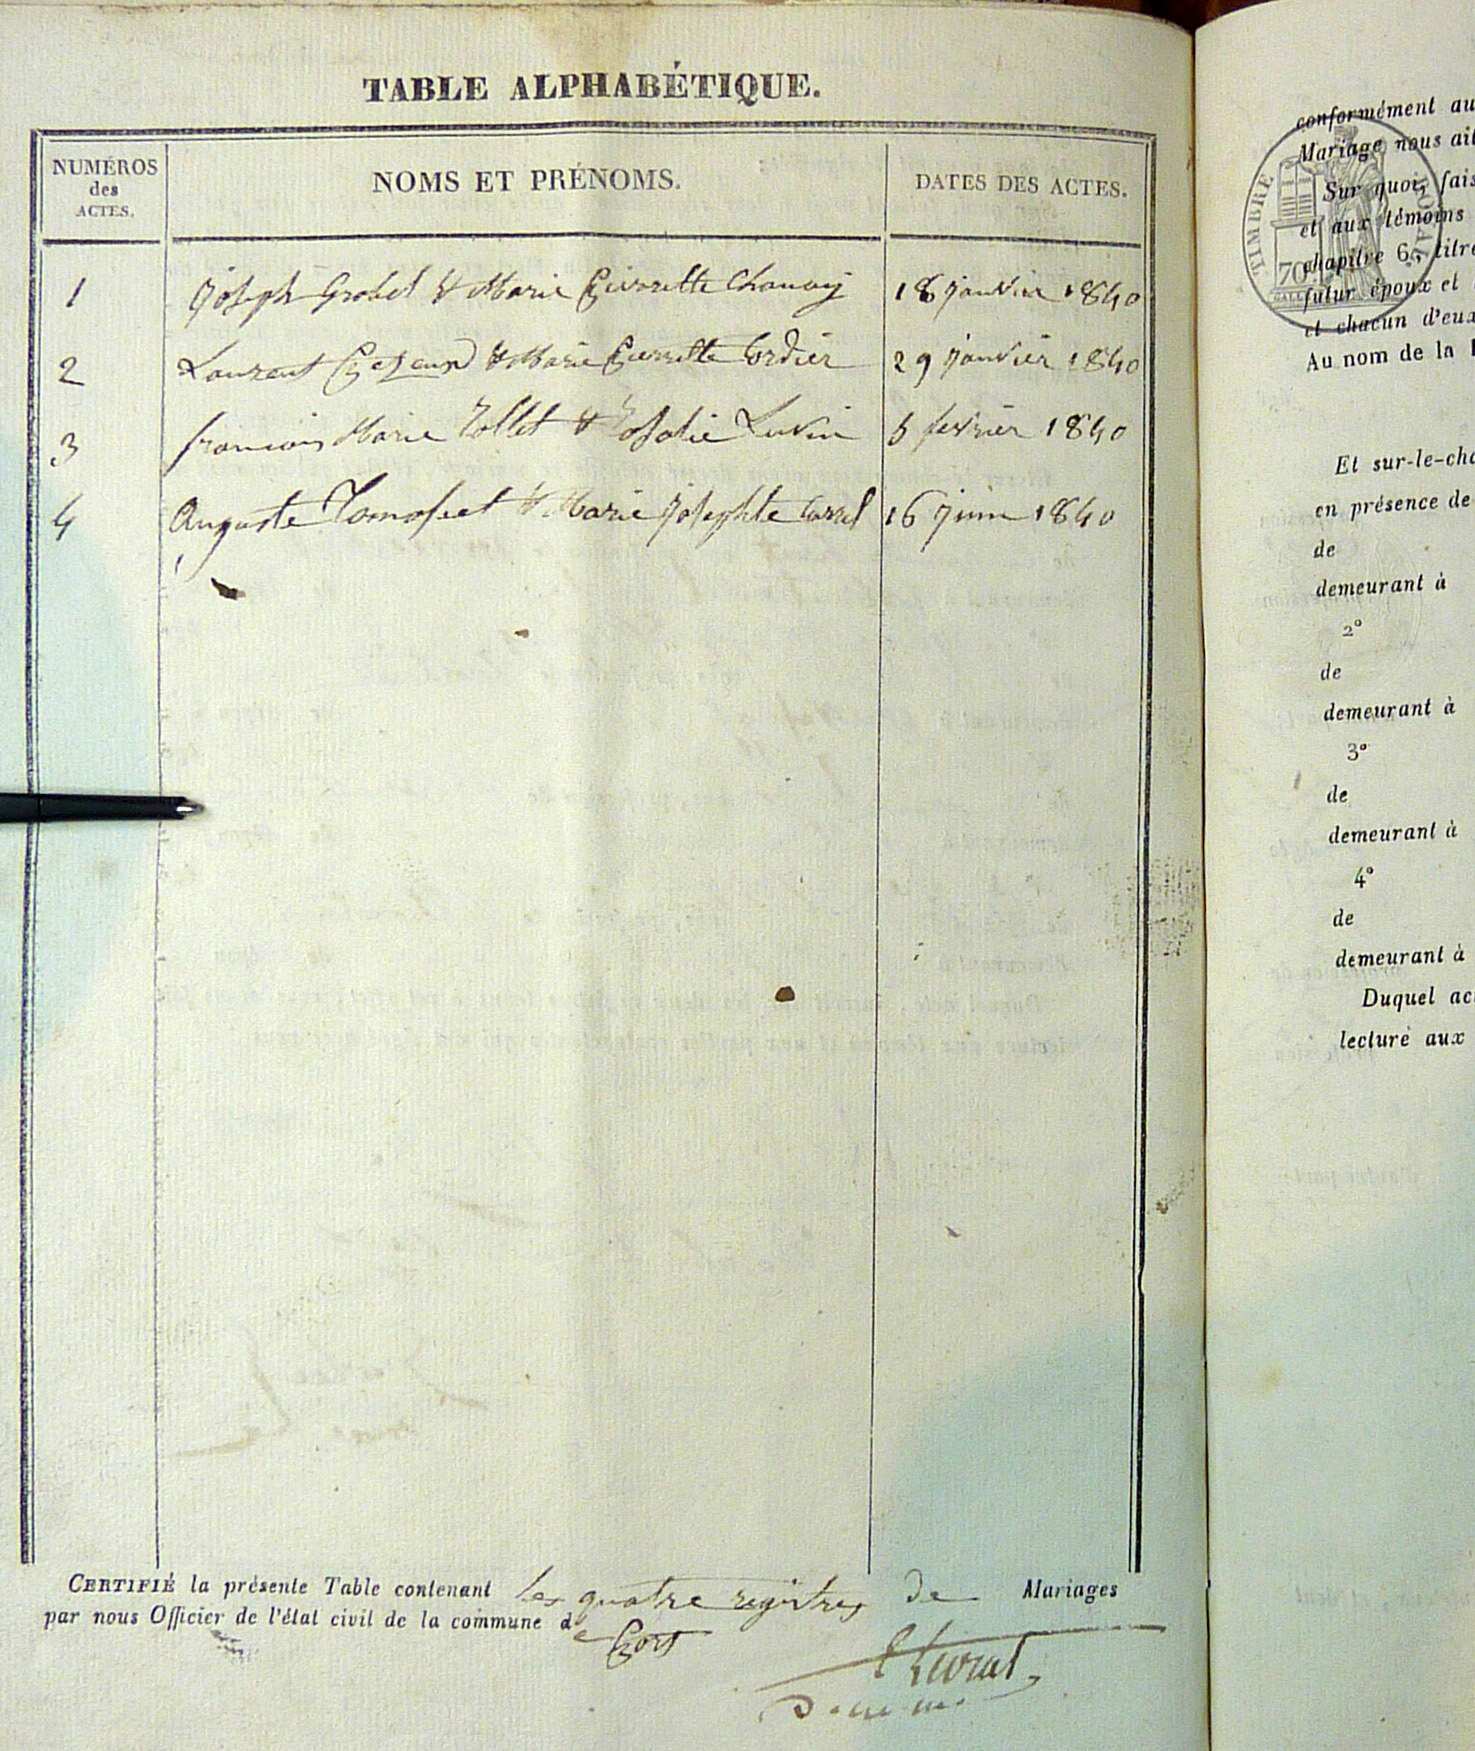 TABLE ALPHABÉTIQUE.
NUMÉROS
des
ACTES.
NOMS ET PRÉNOMS.
DATES DES ACTES.
1 Joseph Grobel & Marie Pierrette Chanay 18 janvier 1840
2 Laurent & Marie Pierrette Cordier 29 janvier 1840
3 françois Marie Tollet & Rosalie Luvin 5 fevrier 1840
4 Auguste & Marie Josephte Carrel 16 juin 1840
CERTIFIÉ la présente Table contenant les quatre registres de Mariages
par nous Officier de l'état civil de la commune de
conformément au
Mariage nous ait
Sur quoi, fais
et aux témoins
chapitre 6, titre
futur époux et
et chacun d'eux
Au nom de la l
TIMBRE ROYAL
70
Et sur-le-cha
en présence de
de
demeurant à
2°
de
demeurant à
3°
de
demeurant à
4°
de
demeurant à
Duquel ac
lecture aux